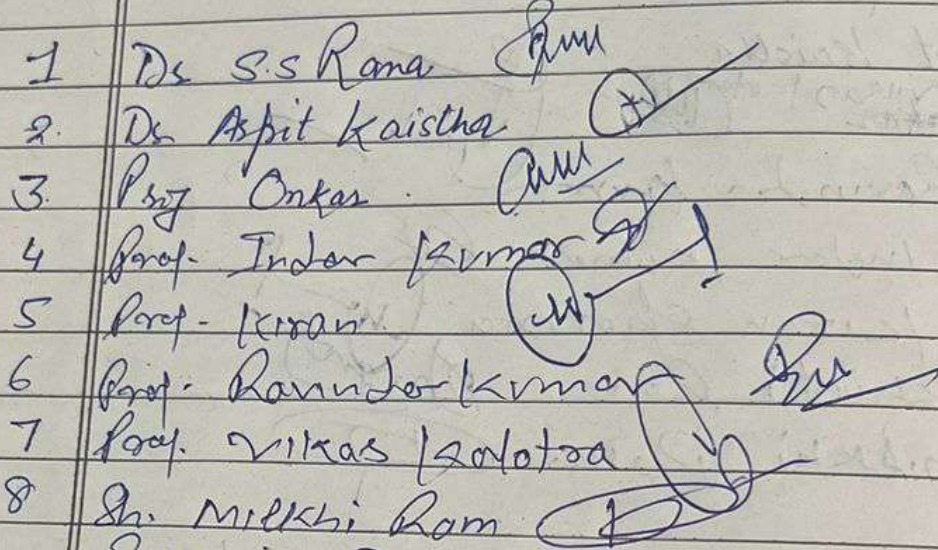 1 Dr S.S Rana
2. Dr Arpit Kaistha
3. Prof Onkar.
4 Prof. Inder Kumar
5 Prof. Kiran
6 Prof. Ravinder Kumar
7 Prof. Vikas Kalotra
8 Sh. Milkhi Ram